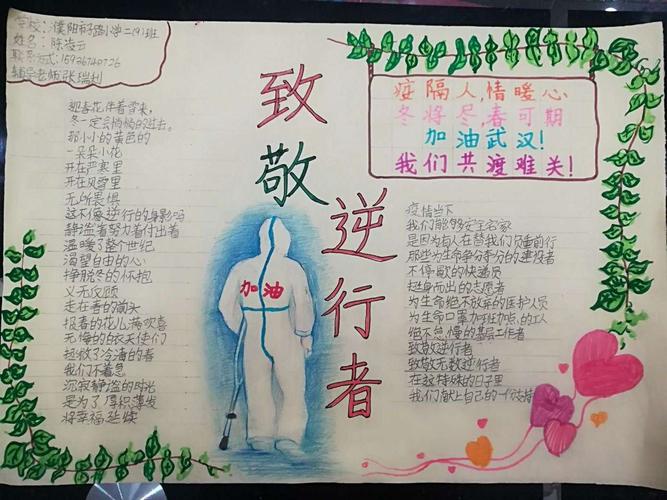 学校：濮阳市子路小学二(9)班
姓名：陈凌云
联系方式：15936740726
辅导老师：张瑞利
致敬
逆行者
疫隔人,情暖心
冬将尽春可期
加油武汉！
我们共渡难关！
迎春花伴着雪来，
冬一定会悄悄的过去。
那小小的黄色的
一朵朵小花
开在严寒里
开在风雪里
无所畏惧
这不像逆行的身影吗
静谧着努力着付出着
温暖了整个世纪
渴望自由的心
挣脱冬的怀抱
义无反顾
走在春的
报春的花儿
无悔的白衣天使们
拯救了冷清的春
我们不着急
沉寂静谧的时光
是为了厚积薄发
将幸福延续
加油
疫情当下
我们能够安全宅家
是因为有人在替我们负重前行
那些为生命争分夺秒的建设者
不停歇的快递员
挺身而出的志愿者
为生命绝不放弃的医护人员
为生命口罩加班加点的工人
绝不怠慢的基层工作者
致敬逆行者
致敬无数逆行者
在这特殊的日子里
我们献上自己的一份支持